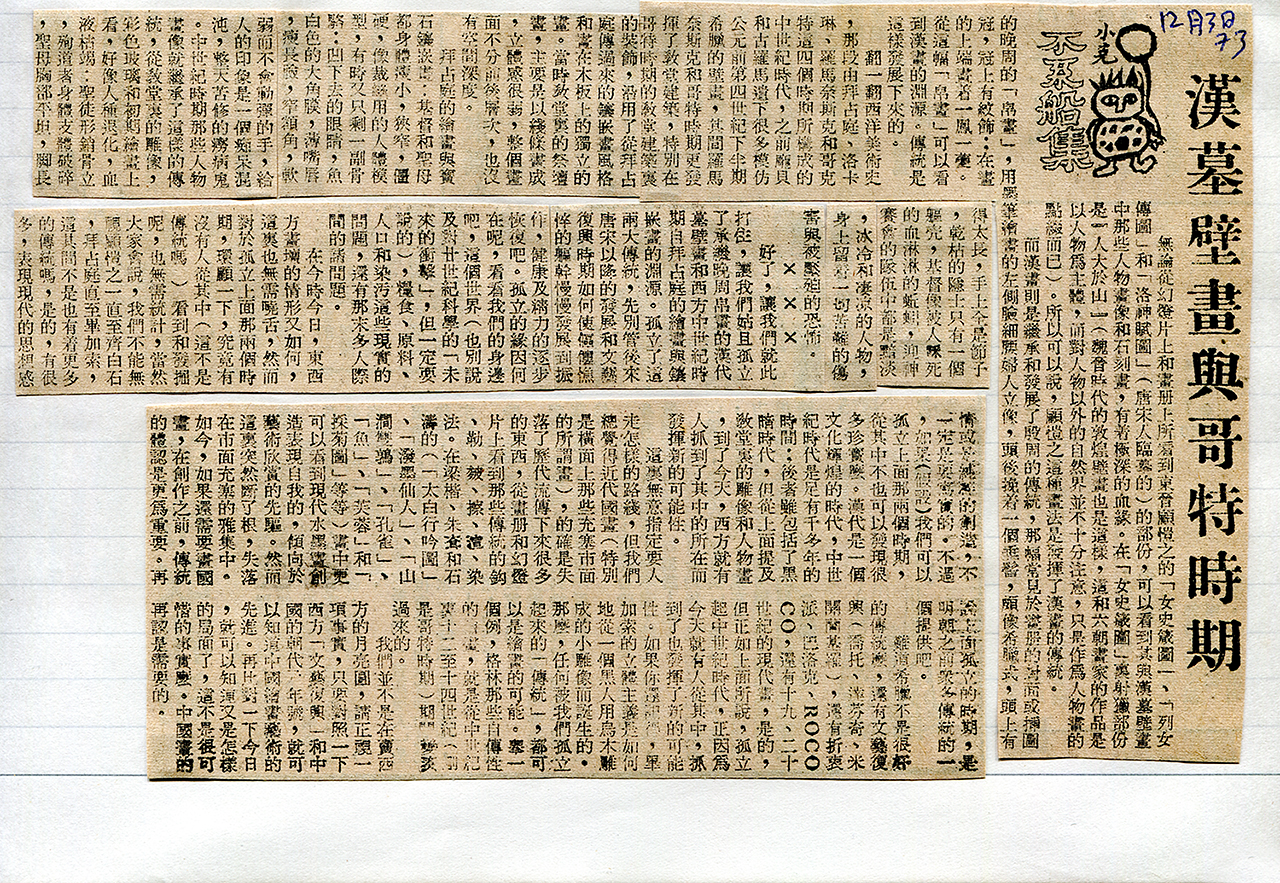 12月3日
73
漢墓壁畫與哥特時期
小克
不系船集
無論從幻燈片上和畫册上所看到東晉顧愷之的「女史箴圖」、「列女
傳圖」和「洛神賦圖」(唐宋人臨摹的)的部份,可以看到其與漢墓壁畫
中那些人物畫像和石刻畫,有着極深的血緣。在「女史箴圖」裏射獵部份
是「人大於山」(魏晉時代的敦煌壁畫也是這樣,這和六朝畫家的作品是
以人物爲主體,而對人物以外的自然界並不十分注意,只是作爲人物畫的
點綴而已)。所以可以說,顧愷之這種畫法是發揮了漢畫的傳統。
而漢畫則是繼承和發展了殷周的傳統,那幅常見於畫册的封面或插圖
的晚周的「帛畫」,用墨筆繪畫的左側臉細腰婦人立像,頭後挽着一個垂髻,頗像希臘式,頭上有
冠,冠上有紋飾;在畫
的上端畫着一鳳一夔。
從這幅「帛畫」可以看
到漢畫的淵源。傳統是
這樣發展下來的。
翻一翻西洋美術史
,那段由拜占庭、洛卡
琳、羅馬奈斯克和哥克
特這四個時期所構成的
中世紀時代,之前龐貝
和古羅馬遺下很多模仿
公元前第四世紀下半期
希臘的壁畫,其間羅馬
奈斯克和哥特時期更發
揮了教堂建築,特別在
哥特時期的教堂建築裏
的裝飾,沿用了從拜占
庭傳過來的鑲嵌畫風格
和畫在木板上的獨立的
畫。當時教堂與的祭壇
畫,主要是以綫條畫成
,立體感很弱,整個畫
面不分前後層次,也沒
有空間深度。
拜占庭的繪畫與寶
石鑲嵌畫,基督和聖母
都身體瘦小,狹窄,僵
硬,像裁縫用的人體模
型,有時又只剩一副骨
骼:凹下去的眼睛,魚
白色的大角膜,薄嘴唇
,瘦長臉,窄額角,軟
弱而不會動彈的手,給
人的印象是一個痴呆混
沌,整天苦修的癆病鬼
。中世紀時期那些人物
畫像就繼承了這樣的傳
統,從教堂裏的雕像,
彩色玻璃和初期繪畫上
看,好像人種退化,血
液枯竭:聖徒形銷骨立
,殉道者身體支體破碎
,聖母胸部平坦,脚長
得太長,手上全是節子
,乾枯的隱士只有一個
軀壳,基督像被人踩死
的血淋淋的蚯蚓,迎神
賽會的隊伍中都是黯淡
,冰冷和凄凉的人物,
身上留着一切苦難的傷
害與被壓迫的恐怖。
×××
好了,讓我們就此
打住,讓我們姑且孤立
了承繼晚周帛畫的漢代
墓壁畫和西方中世紀時
期自拜占庭的繪畫與鑲
嵌畫的淵源。孤立了這
兩大傳統,先別管後來
唐宋以降的發展和文藝
復興時期如何使僵僵憔
悴的軀幹慢慢發展到振
作,健康及精力的逐步
恢復吧。孤立的緣因何
在呢,看看我們的身邊
吧,這個世界(也別說
及對廿世紀科學的「未
來的衝擊」,但一定要
說的),糧食、原料、
人口和染污這些現實的
問題,還有那末多人際
間的諸問題。
在今時今日,東西
方畫壇的情形又如何,
這裏也無需嘵舌,然而
對於孤立上面那兩個時
期,環顧一下,究竟有
沒有人從其中(這不是
傳統嗎)看到和發掘
呢,也無需統計,當然
大家會說,我們不能無
視顧愷之一直至齊白石
,拜占庭直至畢加索,
這其間不是也有着更多
的傳統嗎,是的,有很
多,表現現代的思想感
從其中不也可以發現很
多珍寶麽。漢代是一個
文化輝煌的時代,中世
紀時代是足有千多年的
時間;後者雖包括了黑
暗時代,但從上面提及
敎堂裏的雕像和人物畫
,到了今天,西方就有
人抓到了其中的所在而
發揮新的可能性。
這裏無意指定要人
走怎樣的路綫,但我們
總覺得近代國畫(特別
是橫面上那些充塞市面
的所謂畫),的確是失
落了歷代流傳下來很多
的東西,從畫册和幻燈
片上看到那些傳統的鈎
、勒、皴、擦、渲、染
法。在梁楷、朱耷和石
濤的(「太白行吟圖」
、「潑墨仙人」、「山
澗雙鴉」、「孔雀」、
「魚」、「芙蓉」和「
採菊圖」等等)畫中更
可以看到現代水墨畫創
造表現自我的,傾向於
藝術欣賞的先驅。然而
這裏突然斷了根,失落
在市面充塞的雅集中。
如今,如果還需要畫國
畫,在創作之前,傳統
的體認是更爲重要。再
說上面孤立的時期,是
明朝之前衆多傳統的一
個提供吧。
難道希臘不是很好
的傳統麽,還有文藝復
興(喬托、達芬奇、米
開蘭基羅),還有折衷
派、巴洛克、ROCO
CO,還有十九、二十
世紀的現代畫,是的,
但正如上面所說,孤立
起中世紀時代,正因爲
今天就有人從其中,抓
到了也發揮了新的可能
加索的立體主義是如何
地從一個黑人用烏木雕
成的小雕像而誕生的。
那麽,任何被我們孤立
起來的「傳統」,都可
以是繪畫的可能。舉一
個例,格林那些自傳性
的畫,就是從中世紀
東十二至十四世紀(前
是哥特時期)期間蛻孩
過來的。
我們並不是在賣西
方的月亮圓,請正視一
項事實,只要對照一下
西方「文藝復興」和中
國的朝代、年號,就可
以知道中國繪畫藝術的
先進。再比對一下今日
,就可以知道又是怎樣
的局面了,這不是很可
惜的事實麽。中國畫的
再認是需要的。